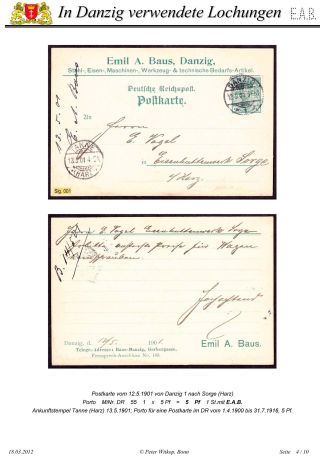 In Danzig verwendete Lochungen E.A.B.
Emil A. Baus, Danzig,
Stahl-, Eisen-, Maschinen-, Werkzeug- & technische Bedarfs-Artikel.
Deutsche Reichspost
Postkarte
13.5.01
An
Herrn E. Vogel
in Eisenhüttenwerk Sorge
a/Harz.
Sig. 001
E. Vogel Eisenhüttenwerk Sorge
Danzig, d. 12/5. 1901.
Telegr.-Adresse: Baus-Danzig, Gerbergasse.
Fernsprech-Anschluss No. 108.
Hochachtend
Emil A. Baus.
Postkarte vom 12.5.1901 von Danzig 1 nach Sorge (Harz)
Porto MiNr. DR 55 1 x 5 Pf = 5 Pf 1 St.mit E.A.B.
Ankunftstempel Tanne (Harz) 13.5.1901; Porto für eine Postkarte im DR vom 1.4.1900 bis 31.7.1916, 5 Pf.
18.03.2012 © Peter Witkop, Bonn Seite 4 / 10